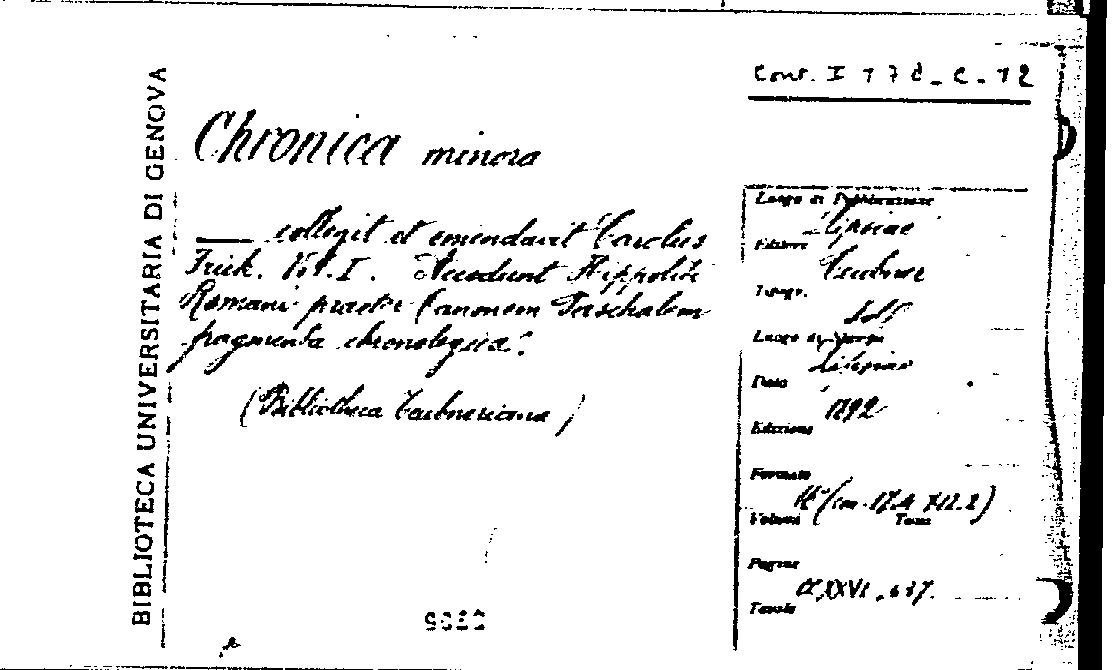 BIBLIOTECA UNIVERSITARIA DI GENOVA
Conr. I 17 d - C - 12
Chronica minora
___ collegit et emendavit Carolus
Frick. Vol. I. Accedunt Hippoliti
Romani praeter Canonem Paschalem
fragmenta chronologica.
(Bibliotheca Teubneriana)
Luogo di Pubblicazione
Lipsiae
Editore
Teubner
Tipogr.
Luogo di Stampa
Lipsiae
Data
1892
Edizione
Formato
16° (cm. 17,4 x 12.2)
Volumi Tomi
Pagine
637.
Tavole